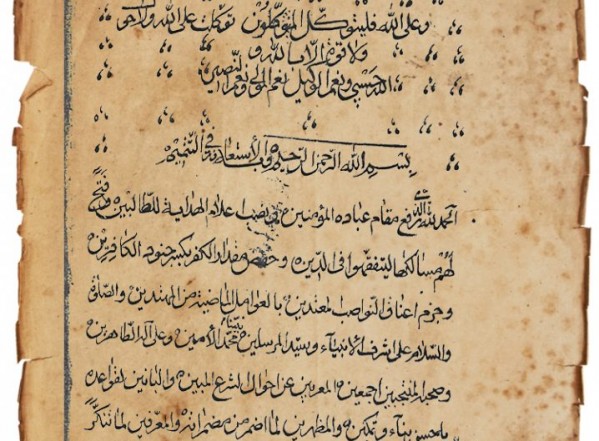 وعلى الله فليتوكل المتوكلون توكلت على الله ولا حول
ولا قوة الا بالله و
الله حسبي ونعم الوكيل نعم المولى ونعم النصير
بسم الله الرحمن الرحيم وبه الاستعانة في التتميم
الحمد لله الذي رفع مقام عباده المؤمنين بنصب اعلام الهداية للطالبين وفتح
لهم مسالكها ليتفقهوا في الدين وخفض مقدار الكفر بكسر جنود الكافرين
وجزم اعناق النواصب المعتدين بالعوامل الماضية من المهتدين والصلوة
والسلام على اشرف الانبياء وسيد المرسلين نبينا محمد الامين وعلى آله الطاهرين
وصحبه المنتجبين اجمعين المعربين عن احوال الشرع المبين والبانين لقواعده
باحسن بناء وتمكين والمظهرين لما اضمر من مضمراته والمعرفين لما تنكر